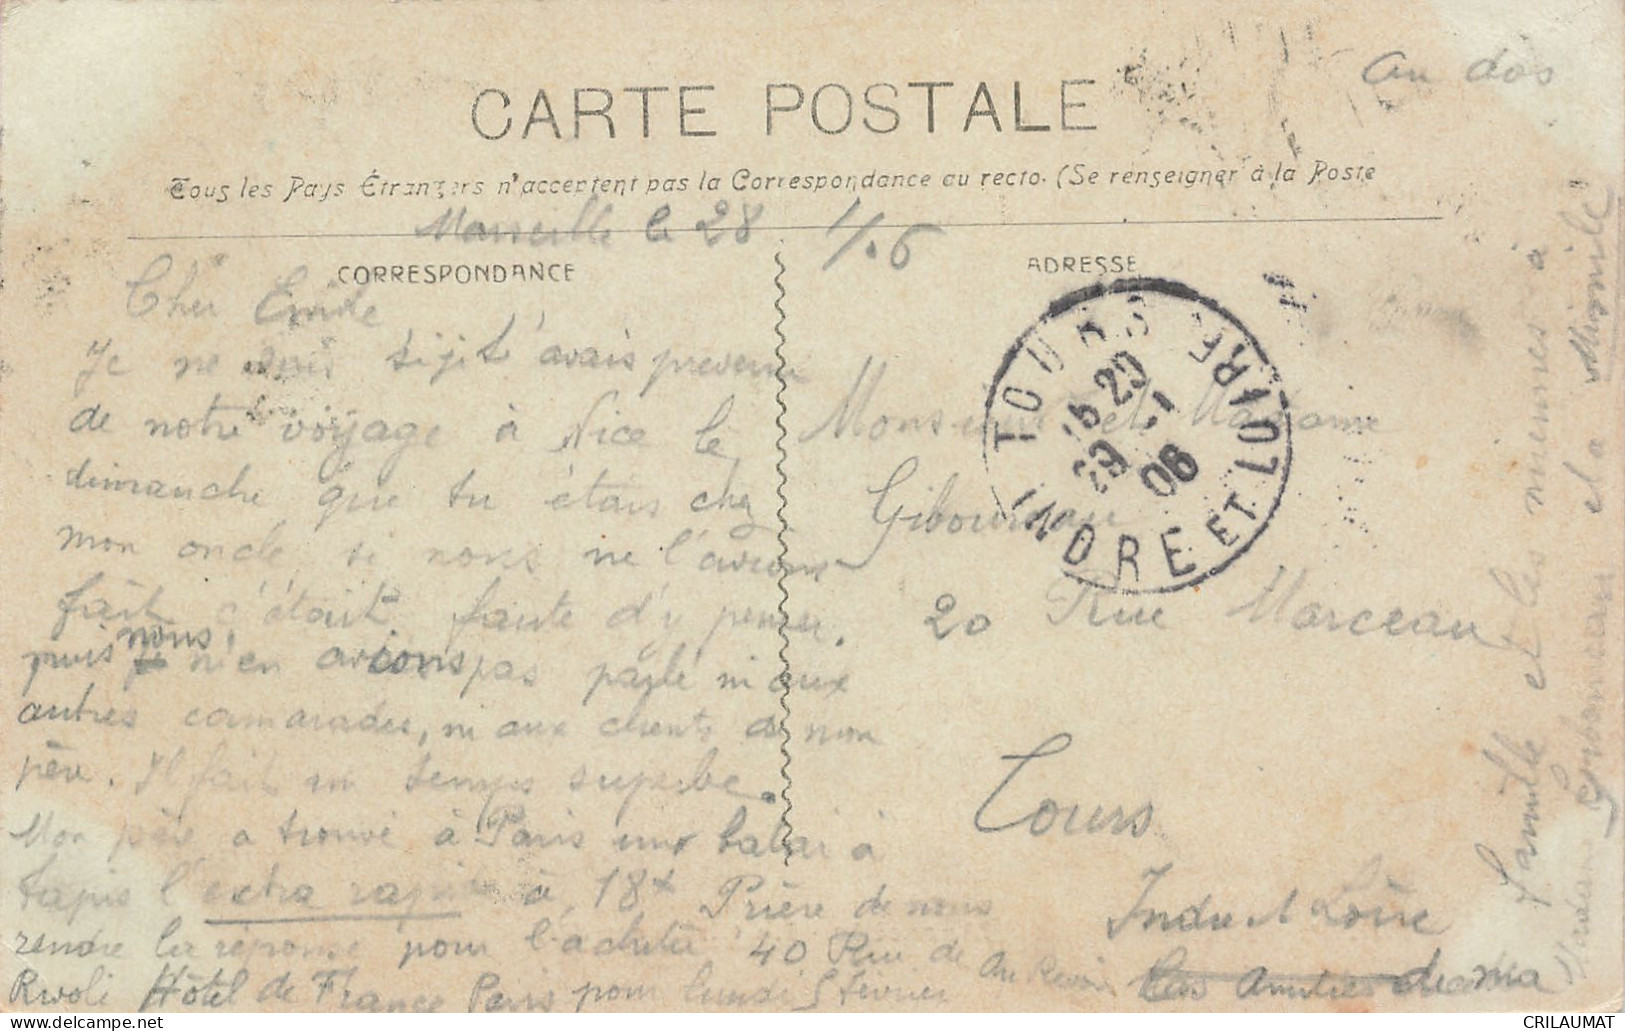 Au dos
CARTE POSTALE
Tous les Pays Étrangers n'acceptent pas la Correspondance au recto. (Se renseigner à la Poste
Marseille le 28 1/.6
CORRESPONDANCE
Cher Emile
Je ne sais si je t'avais prevenu
de notre voyage à Nice le
dimanche que tu étais chez
mon oncle si nous ne l'avions
fait c'était faute d'y penser.
puis nous n'en avions pas parlé ni aux
autres camarades, ni aux clients de mon
père. Il fait un temps superbe.
Mon père a trouvé à Paris un balai à
tapis l'extra rapide à 18f Prière de nous
rendre la réponse pour l'acheter 40 Rue de
Rivoli Hôtel de France Paris pour lundi 5 février
Au Revoir
Les Amitiés de ma
famille et les miennes à
et a Mlle
ADRESSE
TOURS
INDRE ET LOIRE
15 20
29 1
06
Monsieur et Madame
Giboureau
20 Rue Marceau
Tours
Indre et Loire
CRILAUMAT